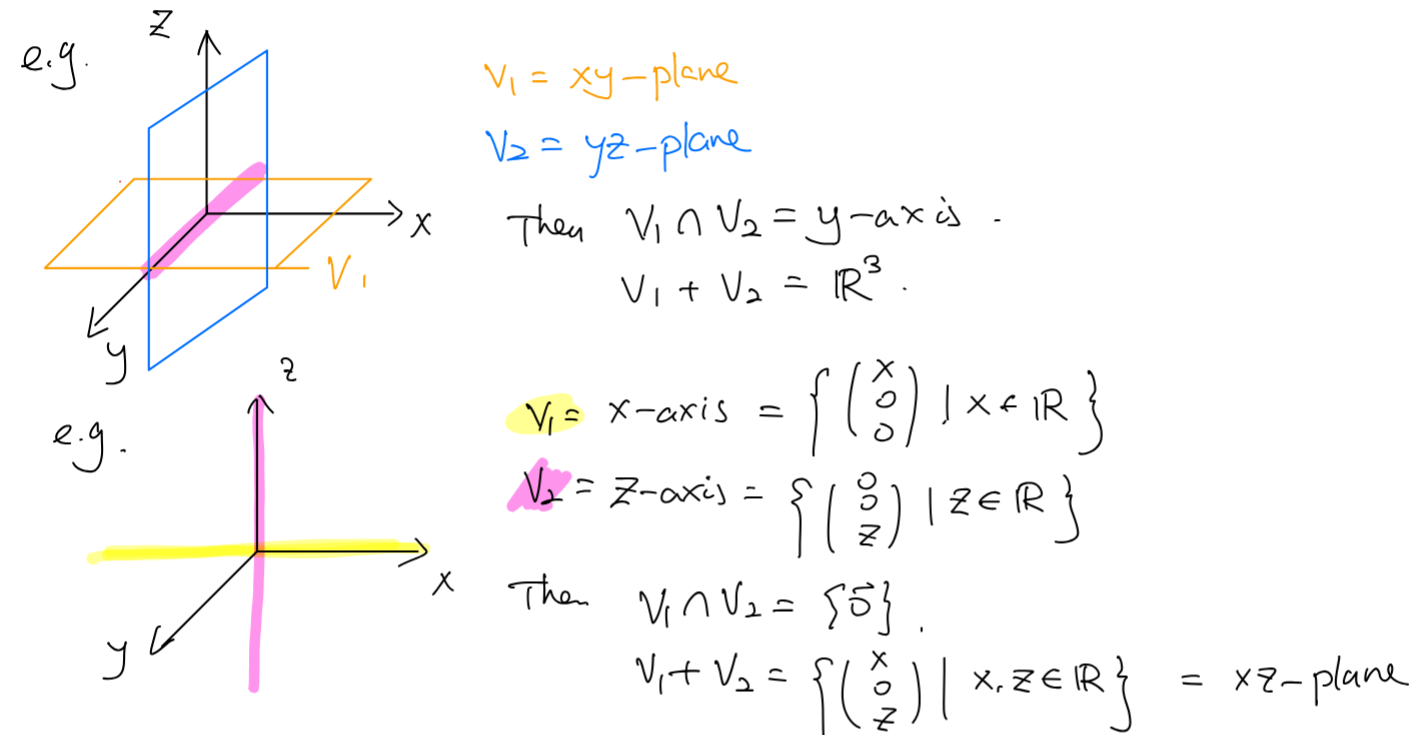 e.g.
z
x
y
V₁
V₁ = xy-plane
V₂ = yz-plane
Then V₁ ∩ V₂ = y-axis.
V₁ + V₂ = ℝ³.
e.g.
z
x
y
V₁ = x-axis = { (x 0 0) | x ∈ ℝ }
V₂ = z-axis = { (0 0 z) | z ∈ ℝ }
Then V₁ ∩ V₂ = {0⃗}.
V₁ + V₂ = { (x 0 z) | x, z ∈ ℝ } = xz-plane